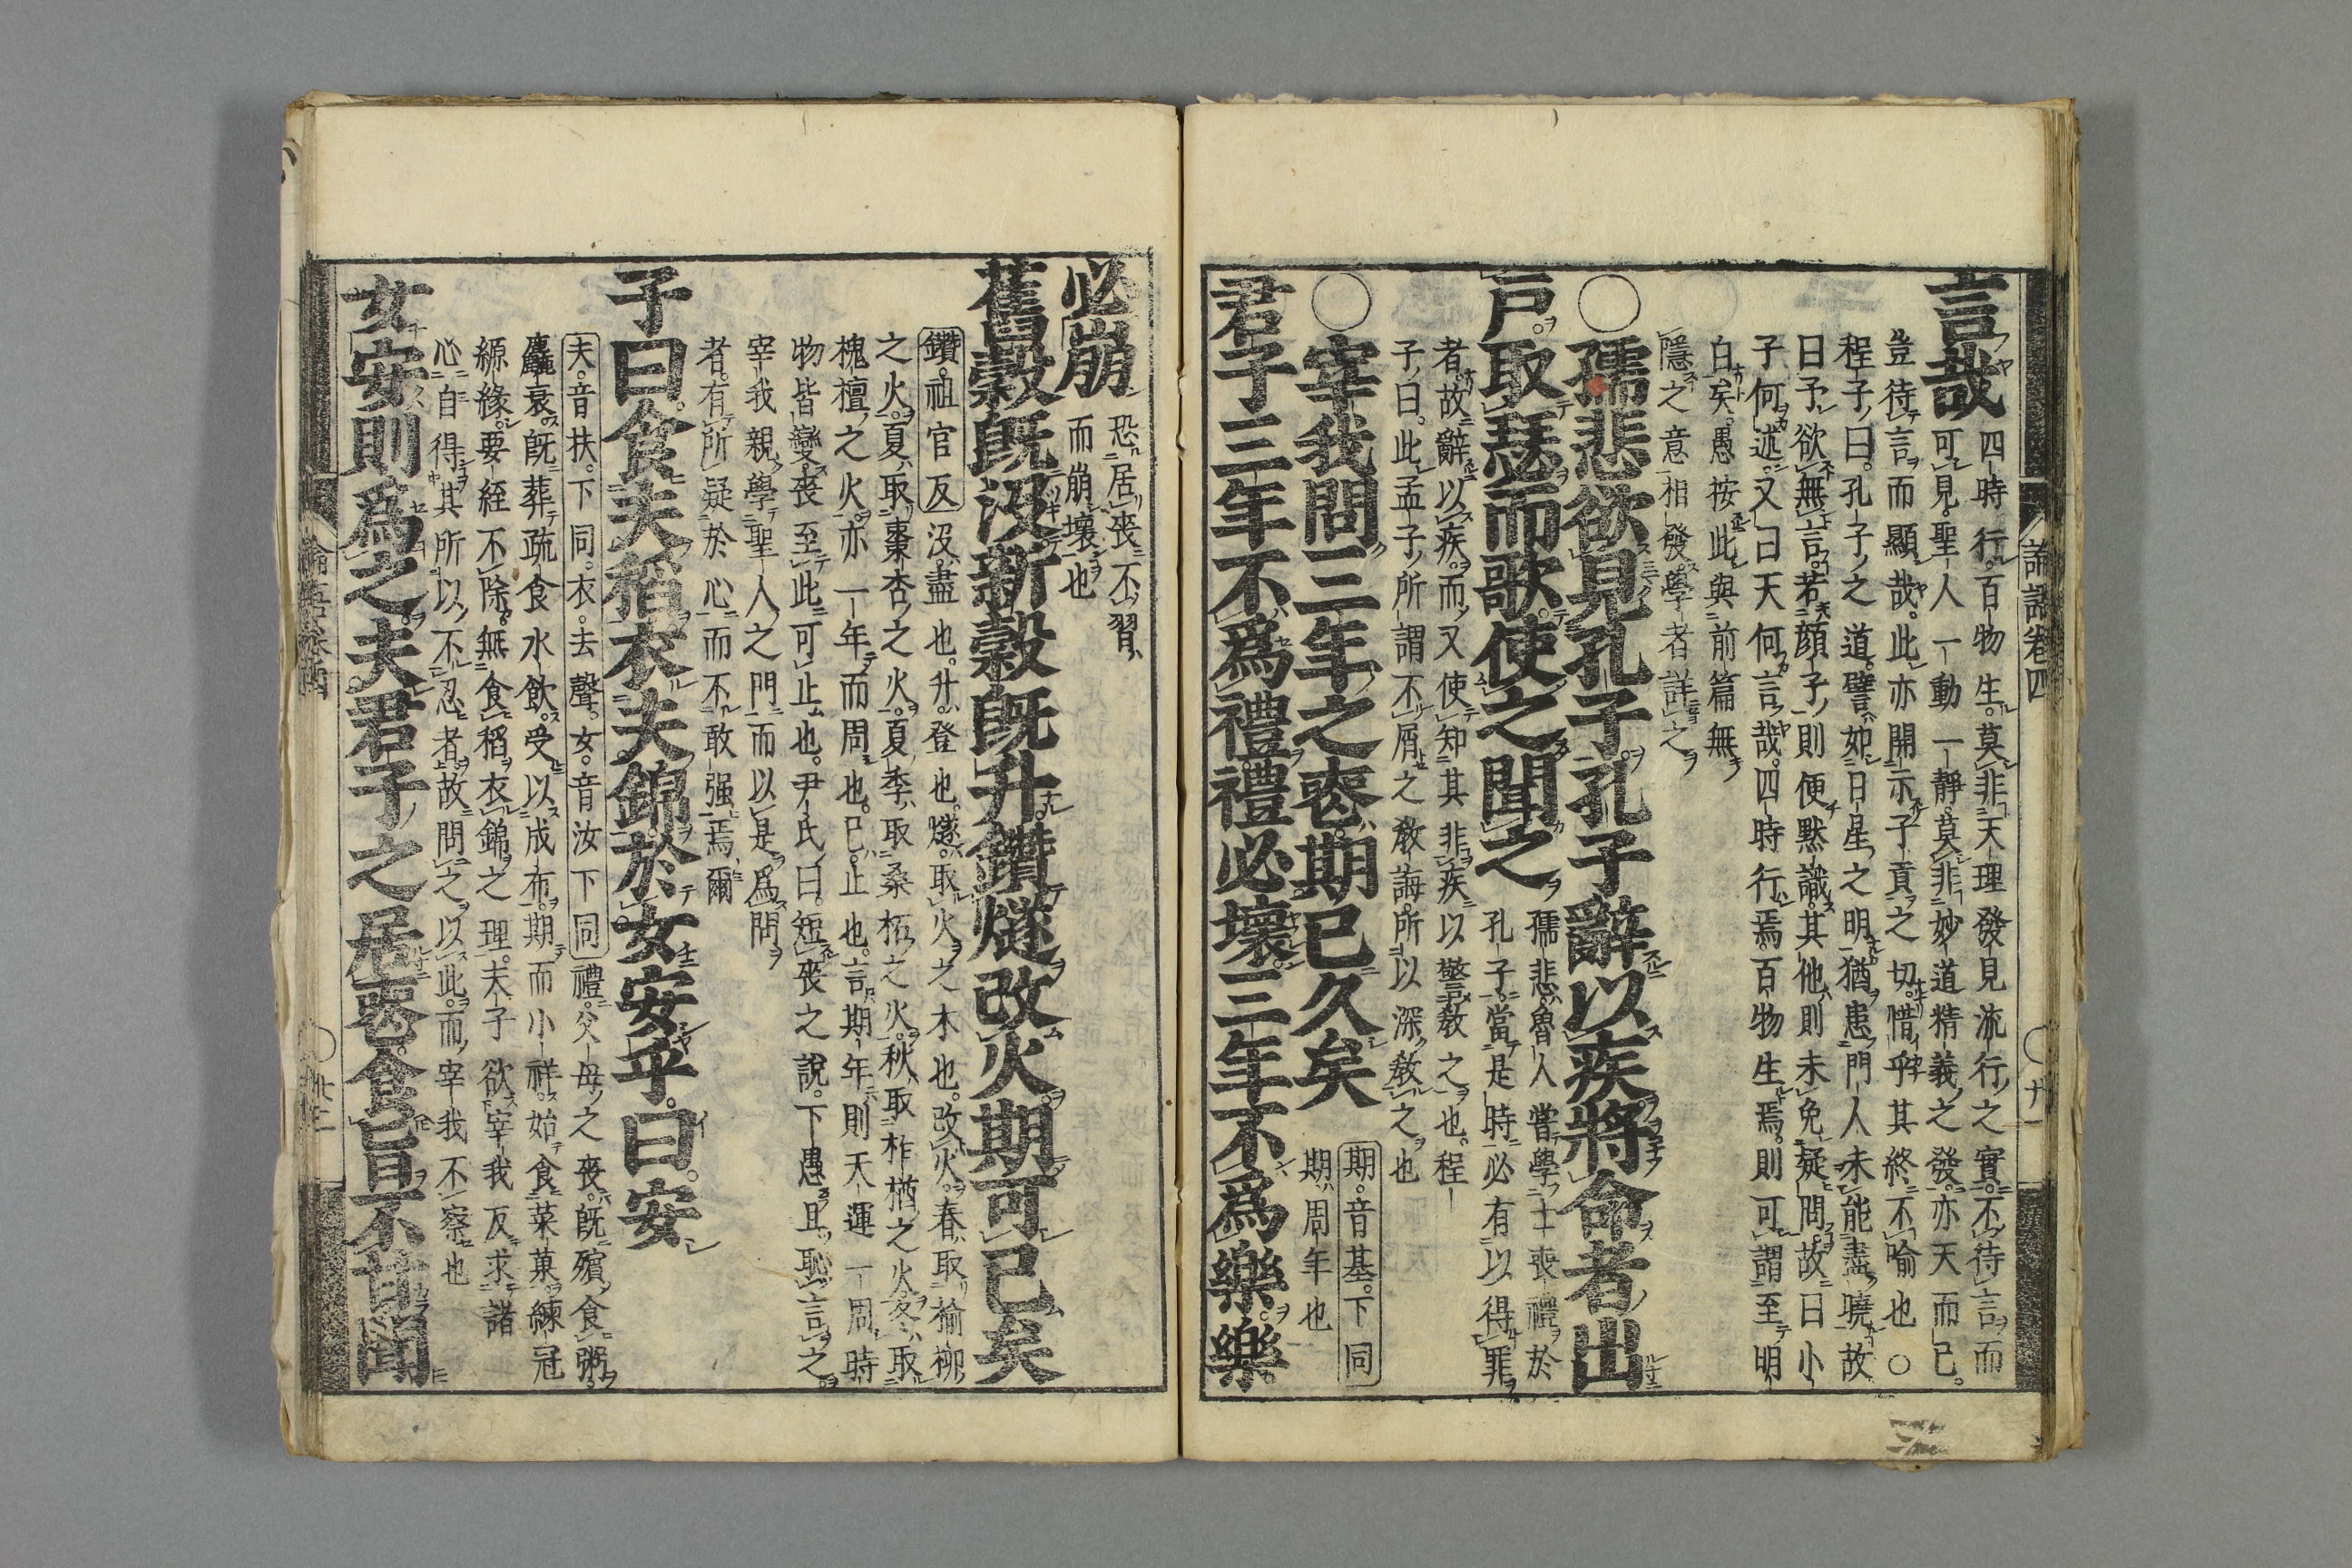 論語卷四 〇 廿一
言哉四時行百物生莫非天理發見流行之實不待言而
可見聖人一動一靜莫非妙道精義之發亦天而已
豈待言而顯哉此亦開示子貢之切惜乎其終不喻也〇
程子曰孔子之道譬如日星之明猶患門人未能盡曉故
曰予欲無言若顏子則便默識其他則未免疑問故曰小
子何述又曰天何言哉四時行焉百物生焉則可謂至明
白矣愚按此與前篇無
隱之意相發學者詳之
〇孺悲欲見孔子孔子辭以疾將命者出
戶取瑟而歌使之聞之孺悲魯人嘗學士喪禮於
孔子當是時必有以得罪
者故辭以疾而又使知其非疾以警教之也程
子曰此孟子所謂不屑之教誨所以深教之也
〇宰我問三年之喪期已久矣期音基下同
期周年也
君子三年不爲禮禮必壞三年不爲樂樂
必崩恐居喪不習
而崩壞也
舊穀既沒新穀既升鑽燧改火期可已矣
鑽祖官反沒盡也升登也燧取火之木也改火春取榆柳
之火夏取棗杏之火夏季取桑柘之火秋取柞楢之火冬取
槐檀之火亦一年而周也已止也言期年則天運一周時
物皆變喪至此可止也尹氏曰短喪之說下愚且恥言之
宰我親學聖人之門而以是爲問
者有所疑於心而不敢强焉爾
子曰食夫稻衣夫錦於女安乎曰安
夫音扶下同衣去聲女音汝下同禮父母之喪既殯食粥
麤衰既葬疏食水飲受以成布期而小祥始食菜菓練冠
縓緣要絰不除無食稻衣錦之理夫子欲宰我反求諸
心自得其所以不忍者故問之以此而宰我不察也
女安則爲之夫君子之居喪食旨不甘聞
論語卷四